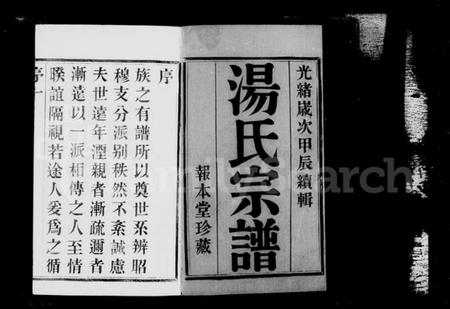 光緒歲次甲辰續輯
湯氏宗譜
報本堂珍藏
序
族之有譜所以奠世系辨昭
穆支分派別秩然不紊誠慮
夫世遠年湮親者漸疏邇者
漸遠以一派相傳之人至情
睽誼隔視若途人爰為之循
序一